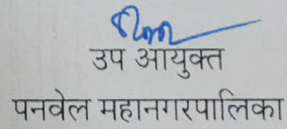 उप आयुक्त
पनवेल महानगरपालिका